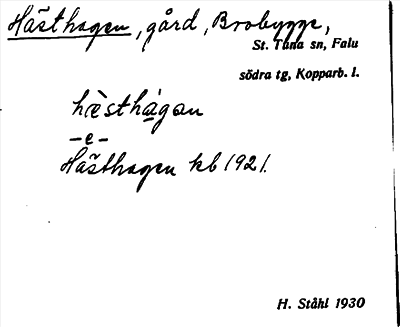 Hästhagen, gård, Brobygge,
St. Tuna sn, Falu
södra tg, Kopparb. l.
hὲsthàgan
-e-
Hästhagen kb 1921.
H. Ståhl 1930